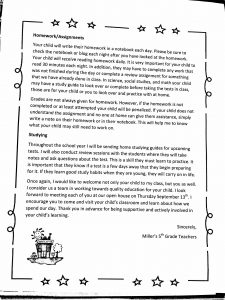 Homework/Assignments
Your child will write their homework in a notebook each day. Please be sure to
check the notebook or bag each night after you have looked at the homework.
Your child will receive reading homework daily. It is very important for your child to
read 30 minutes each night. In addition, they may have to complete any work that
was not finished during the day or complete a review assignment for something
that we have already done in class. In science, social studies, and math your child
may have a study guide to look over or complete before taking the tests in class,
those are for your child or you to look over and practice with at home.
Grades are not always given for homework. However, if the homework is not
completed or at least attempted your child will be penalized. If your child does not
understand the assignment and no one at home can give them assistance, simply
write a note on their homework or in their notebook. This will help me to know
what your child may still need to work on.
Studying
Throughout the school year I will be sending home studying guides for upcoming
tests. I will also conduct review sessions with the students where they will take
notes and ask questions about the test. This is a skill they must learn to practice. It
is important that they know if a test is a few days away that they begin preparing
for it. If they learn good study habits when they are young, they will carry on in life.
Once again, I would like to welcome not only your child to my class, but you as well.
I consider us a team in working towards quality education for your child. I look
forward to meeting each of you at our open house on Thursday September 12th. I
encourage you to come and visit your child's classroom and learn about how we
spend our day. Thank you in advance for being supportive and actively involved in
your child's learning.
Sincerely,
Miller's 5th Grade Teachers